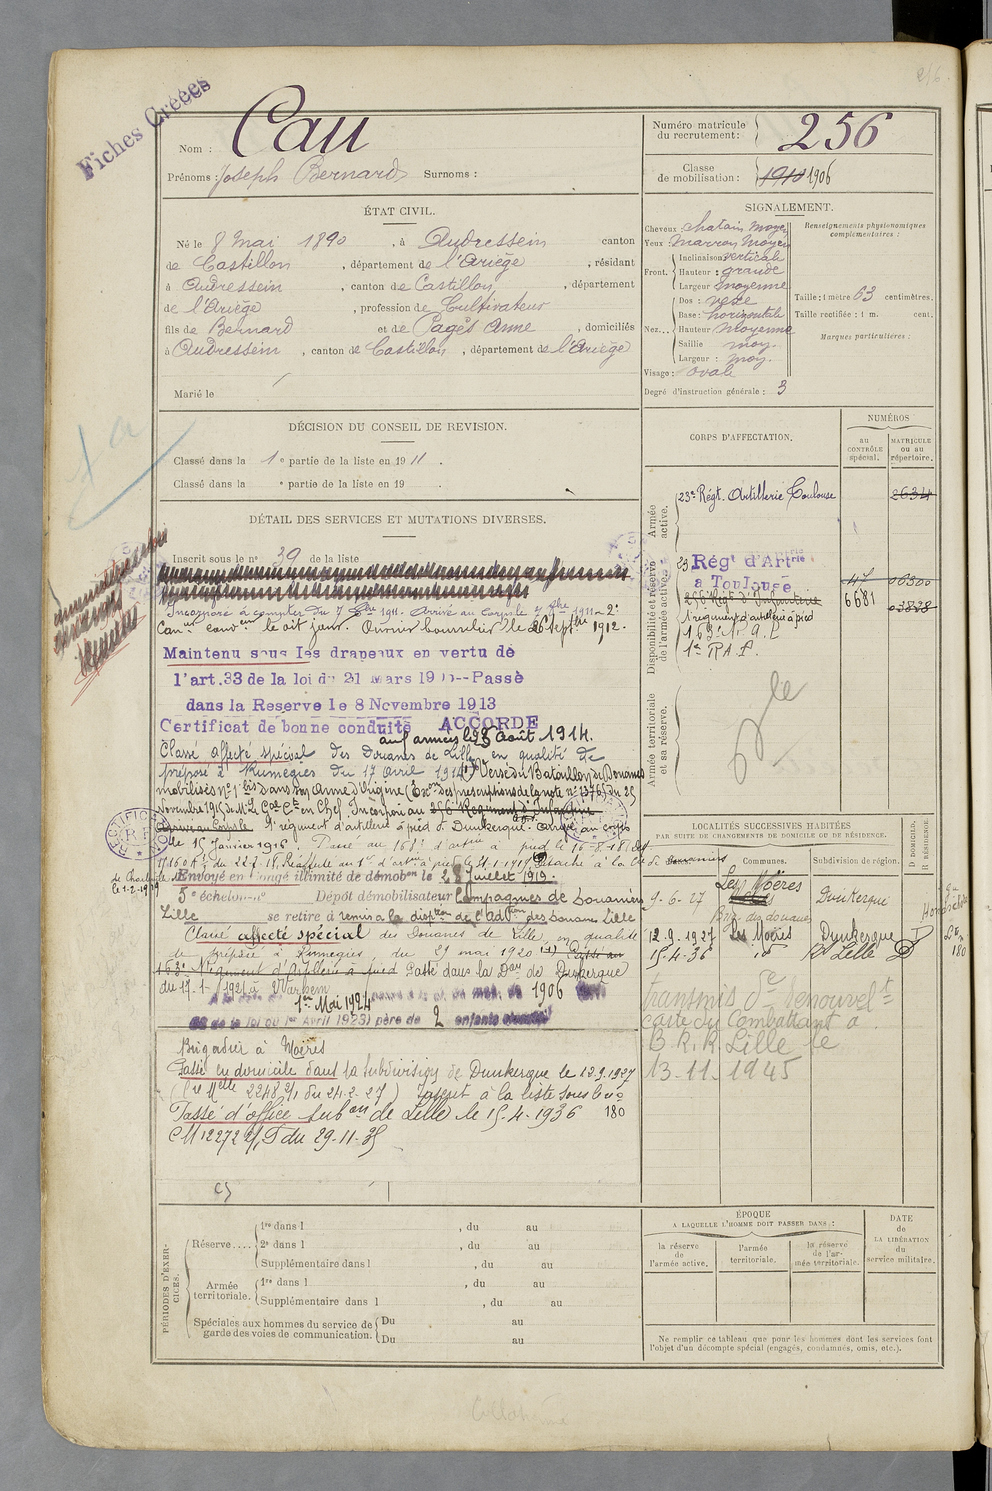 Fiches Créées
Nom : Cau
Prénoms : Joseph Bernard Surnoms :
Numéro matricule du recrutement : 256
Classe de mobilisation : 1910 1906
ÉTAT CIVIL.
Né le 8 Mai 1890, à Audressein canton
de Castillon, département de l'Ariège, résidant
à Audressein, canton de Castillon, département
de l'Ariège, profession de Cultivateur
fils de Bernard et de Pagès Anne, domiciliés
à Audressein, canton de Castillon, département de l'Ariège
Marié le
SIGNALEMENT.
Cheveux : chatain moyen
Yeux : marron moyen
Front. Inclinaison verticale
Hauteur : grande
Largeur moyenne
Nez... Dos : vexe
Base : horizontale
Hauteur moyenne
Saillie moy.
Largeur : moy.
Visage : ovale
Renseignements physionomiques complémentaires :
Taille : 1 mètre 63 centimètres.
Taille rectifiée : 1 m. cent.
Marques particulières :
Degré d'instruction générale : 3
DÉCISION DU CONSEIL DE REVISION.
Classé dans la 1e partie de la liste en 1911.
Classé dans la e partie de la liste en 19
DÉTAIL DES SERVICES ET MUTATIONS DIVERSES.
Inscrit sous le n° 39 de la liste
Incorporé à compter du 7 8bre 1911. Arrivé au Corps le
Can. cond. le dit jour. Ouvrier bourrelier le 26 Septbre 1912.
Maintenu sous les drapeaux en vertu de
l'art.33 de la loi du 21 mars 19 -- Passé
dans la Reserve le 8 Novembre 1913
Certificat de bonne conduite ACCORDE
aux armées le 8 Août 1914.
Classé affecté spécial des Douanes de Lille en qualité de
préposé à Rumegies du 17 Avril 1914 (1) Versé du Bataillon de Douanes
mobilisés n° 1 bis dans son Arme d'Origine (Exon des prescriptions de la note n° 1376) du 25
Novembre 1915 de Mr Le Gal Ct en Chef. Incorporé au 256 Régiment d'Infanterie
Arrivé au Corps le 1er régiment d'artillerie à pied de Dunkerque. Arrivé au corps
le 15 Janvier 1916. Passé au 168e d'artrie à pied le 16-8-18
Envoyé en congé illimité de démobon le 28 Juillet 1919.
5e échelon n° Dépôt démobilisateur Compagnies de Douaniers
Lille se retire à remis à la dispon de l'adon des Douanes Lille
Classé affecté spécial des Douanes de Lille, en qualité
de préposé à Rumegies, du 21 mai 1920 (1) Passé au
163e Régiment d'Artillerie à pied Passé dans la Don de Dunkerque
du 17-1-1921 à Warhem
1er Mai 1924 1906
de la loi du 1er Avril 1923) père de 2 enfants
Brigadier à Moëres
Passé en domicile dans la subdivision de Dunkerque le 12.9.1927
Inscrit à la liste sous le n°
Passé d'office subon de Lille le 15-4-1936 180
CM 12272 2/1 D du 29-11-35
CORPS D'AFFECTATION.
NUMÉROS
AU CONTRÔLE spécial.
MATRICULE ou au répertoire.
Armée active.
23e Régt. Artillerie Toulouse 2634
Disponibilité et réserve de l'armée active.
23 Régt d'Artrie
a Toulouse 06500
256 Régt d'Infanterie 6681 03828
1er regiment d'artillerie à pied
1er R.A.P.
Armée territoriale et sa réserve.
LOCALITÉS SUCCESSIVES HABITÉES
PAR SUITE DE CHANGEMENTS DE DOMICILE OU DE RÉSIDENCE.
Communes.
Subdivision de région.
D DOMICILE.
R RÉSIDENCE.
9-6-27 Les Moëres Dunkerque
Brig. des douanes
12.9.1927 Les Moëres Dunkerque D
15-4-36 id° Lille D 180
transmis De renouvelt
carte du Combattant à
B.R.R. Lille le
13-11-1945
PÉRIODES D'EXERCICES.
Réserve.... 1re dans l , du au
2e dans l , du au
Supplémentaire dans l , du au
Armée territoriale. 1re dans l , du au
Supplémentaire dans l , du au
Spéciales aux hommes du service de garde des voies de communication. Du au
Du au
ÉPOQUE
A LAQUELLE L'HOMME DOIT PASSER DANS :
la réserve de l'armée active.
l'armée territoriale.
la réserve de l'armée territoriale.
DATE
DE LA LIBÉRATION
du service militaire.
Ne remplir ce tableau que pour les hommes dont les services font
l'objet d'un décompte spécial (engagés, condamnés, omis, etc.).